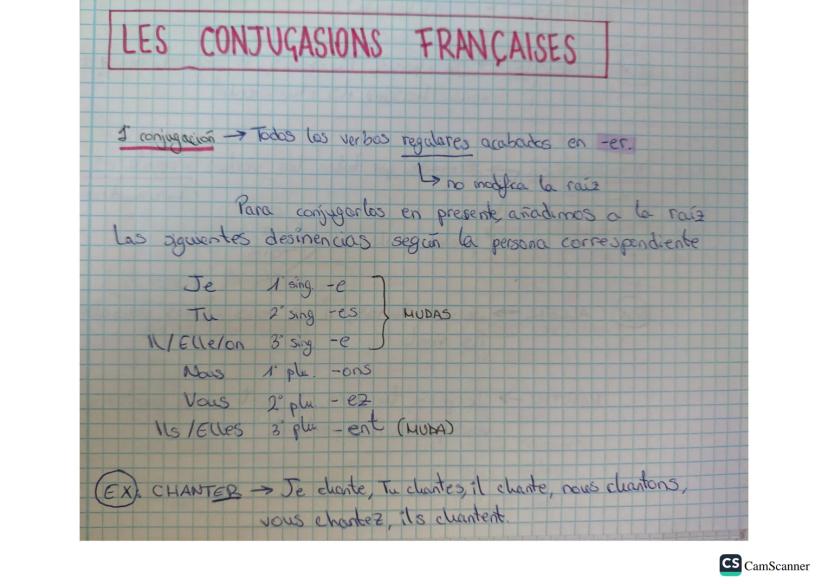 LES CONJUGASIONS FRANÇAISES
1ª conjugación → Todos los verbos regulares acabados en -er.
↳ no modifica la raíz
Para conjugarlos en presente, añadimos a la raíz
las siguientes desinencias según la persona correspondiente
Je 1ª sing. -e
Tu 2ª sing -es MUDAS
Il/Elle/on 3ª sing -e
Nous 1ª plu. -ons
Vous 2ª plu -ez
Ils/Elles 3ª plu -ent (MUDA)
EX). CHANTER → Je chante, Tu chantes, il chante, nous chantons,
vous chantez, ils chantent.
CS CamScanner